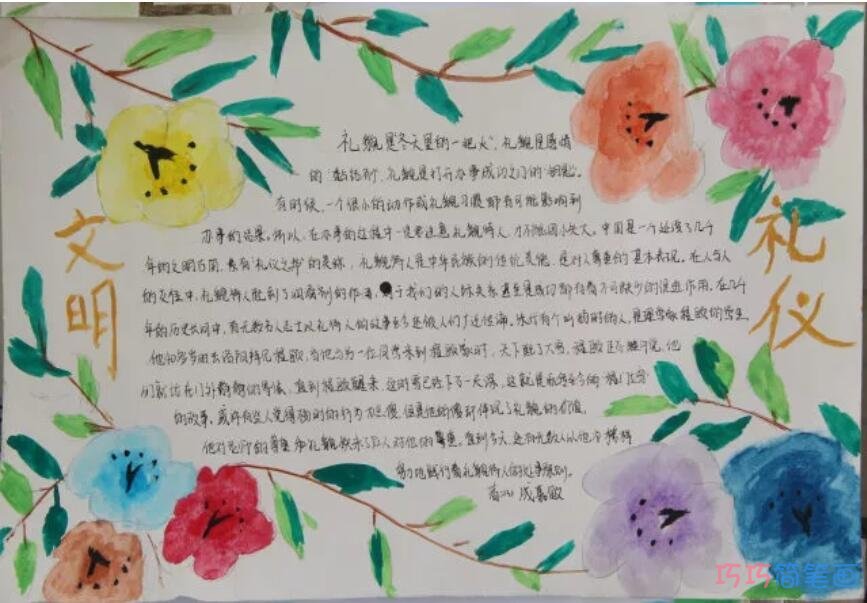 文明
礼仪
礼貌是"冬天里的一把火"，礼貌是感情
的"黏结剂"，礼貌是打开办事成功之门的"钥匙"。
有时候，一个很小的动作或礼貌习惯都有可能影响到
办事的结果。所以，在办事的过程中一定要注意礼貌待人，才不致因小失大。中国是一个延续了几千
年的文明古国，素有"礼仪之邦"的美称，礼貌待人是中华民族的传统美德，是对人尊重的基本表现。在人与人
的交往中，礼貌待人起到了润滑剂的作用，于我们的人际关系甚至是成功都有着不可缺少的促进作用。在几千
年的历史长河中，有无数名人志士以礼待人的故事至今还被人们广泛流传。宋代有个叫杨时的人，是理学家程颐的学生，
他和 去洛阳拜见程颐，当他 来到程颐家时，天下起了大雪，程颐正在 ，他
们就站在门外静静的等候，直到程颐醒来，这时雪已经下了一尺深，这就是流传至今的"程门立雪"
的故事。或许有些人觉得杨时的行为 ，但是他的傻却体现了礼貌的价值，
他对老师的尊重和礼貌换来了后人对他的尊重。直到今天，还有无数人从也不懈样
努力地践行着礼貌待人的处事原则。
成嘉敏
巧巧简笔画